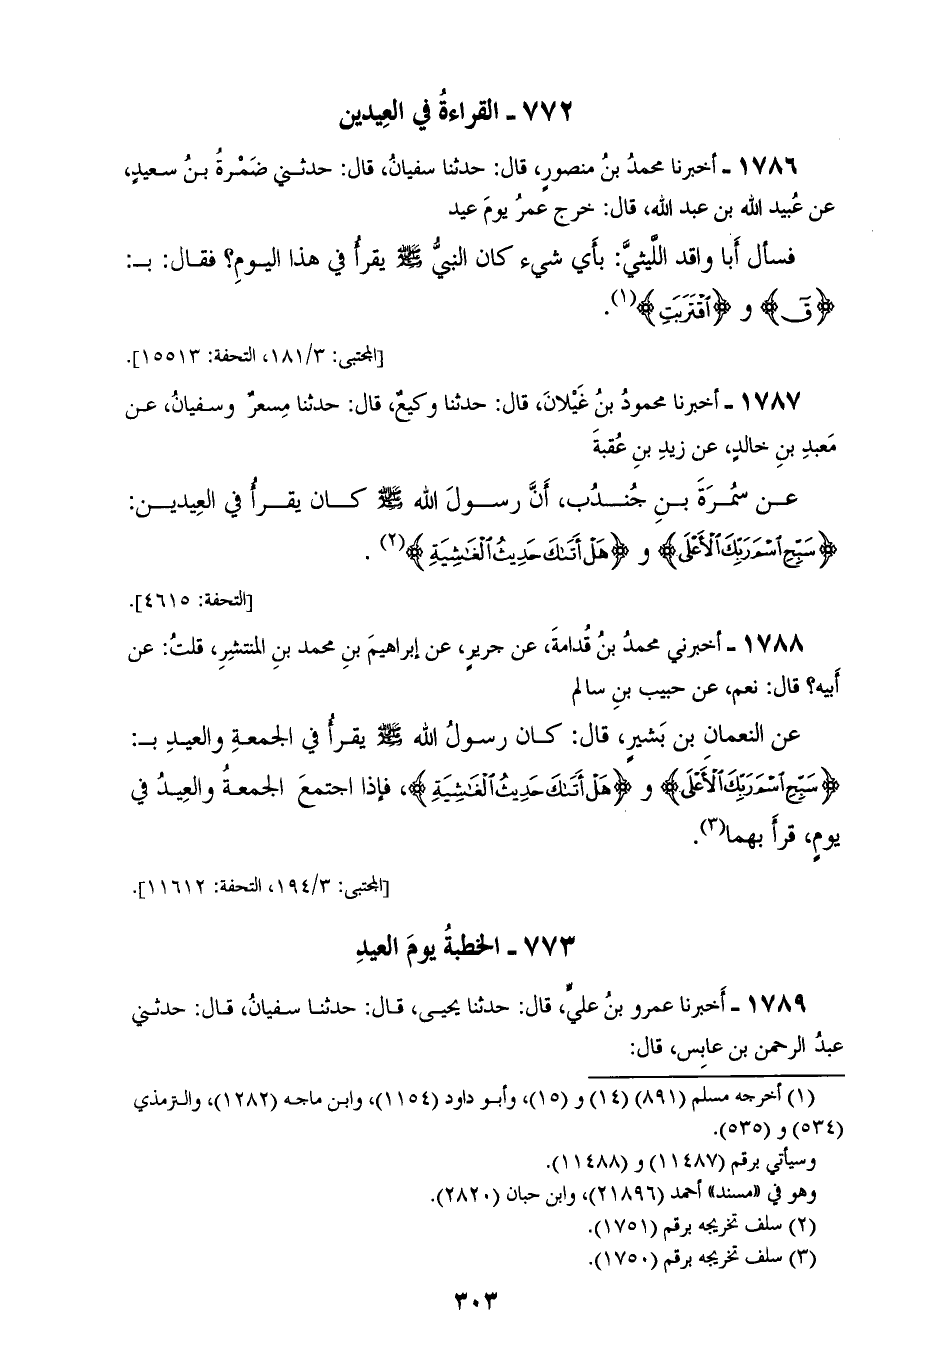 ٧٧٢ ـ القراءةُ في العِيدين
١٧٨٦ ـ أخبرنا محمدُ بنُ منصورٍ، قال: حدثنا سفيانُ، قال: حدثني ضَمْرةُ بنُ سعيدٍ،
عن عُبيد الله بن عبد الله، قال: خرج عمرُ يومَ عيد
فسأل أَبا واقد اللَّيثيَّ: بأَي شيء كان النبيُّ ﷺ يقرأُ في هذا اليومِ؟ فقال: بـ:
﴿قٓ﴾ و ﴿ٱقْتَرَبَتِ﴾(١).
[المجتبى: ١٨١/٣، التحفة: ١٥٥١٣].
١٧٨٧ ـ أخبرنا محمودُ بنُ غَيْلانَ، قال: حدثنا وكيعٌ، قال: حدثنا مِسعرٌ وسفيانُ، عن
مَعبدِ بنِ خالدٍ، عن زيدِ بنِ عُقبةَ
عن سَمُرَةَ بنِ جُندُب، أَنَّ رسولَ الله ﷺ كان يقرأُ في العِيدين:
﴿سَبِّحِ ٱسْمَ رَبِّكَ ٱلْأَعْلَى﴾ و ﴿هَلْ أَتَىٰكَ حَدِيثُ ٱلْغَٰشِيَةِ﴾(٢).
[التحفة: ٤٦١٥].
١٧٨٨ ـ أخبرني محمدُ بنُ قُدامةَ، عن جريرٍ، عن إبراهيمَ بنِ محمد بنِ المنتشِرِ، قلتُ: عن
أَبيه؟ قال: نعم، عن حبيب بنِ سالم
عن النعمانِ بن بَشيرٍ، قال: كان رسولُ الله ﷺ يقرأُ في الجمعةِ والعيدِ بـ:
﴿سَبِّحِ ٱسْمَ رَبِّكَ ٱلْأَعْلَى﴾ و ﴿هَلْ أَتَىٰكَ حَدِيثُ ٱلْغَٰشِيَةِ﴾، فإذا اجتمعَ الجمعةُ والعِيدُ في
يومٍ، قرأَ بهما(٣).
[المجتبى: ١٩٤/٣، التحفة: ١١٦١٢].
٧٧٣ ـ الخطبةُ يومَ العيدِ
١٧٨٩ ـ أَخبرنا عمرو بنُ عليٍّ، قال: حدثنا يحيى، قال: حدثنا سفيانُ، قال: حدثني
عبدُ الرحمن بن عابِس، قال:
(١) أخرجه مسلم (٨٩١) (١٤) و (١٥)، وأبو داود (١١٥٤)، وابن ماجه (١٢٨٢)، والترمذي
(٥٣٤) و (٥٣٥).
وسيأتي برقم (١١٤٨٧) و (١١٤٨٨).
وهو في «مسند» أحمد (٢١٨٩٦)، وابن حبان (٢٨٢٠).
(٢) سلف تخريجه برقم (١٧٥١).
(٣) سلف تخريجه برقم (١٧٥٠).
٣٠٣